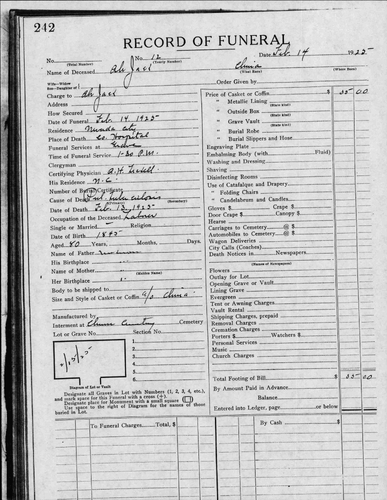 242
RECORD OF FUNERAL
No. No. 12 Date Feb. 14 1925
(Total Number) (Yearly Number)
Name of Deceased Ah Jack China
(Vital Race) (Where Born)
Wife—Widow
Son—Daughter of Order Given by
Charge to Ah Jack
Address
How Secured
Date of Funeral Feb. 14 1925
Residence Nevada City
Place of Death Co. Hospital
Funeral Services at Grave
Time of Funeral Service 1-30 P.M.
Clergyman
Certifying Physician
His Residence N.C.
Number of Burial Certificate
Cause of Death Pul. tuberculosis
(Secondary)
Date of Death Feb. 1925
Occupation of the Deceased Laborer
Single or Married Religion
Date of Birth 1845
Aged 80 Years, Months, Days.
Name of Father Unknown
His Birthplace
Name of Mother
(Maiden Name)
Her Birthplace
Body to be shipped to
Size and Style of Casket or Coffin China
Manufactured by
Interment at Chinese Cemetery Cemetery
Lot or Grave No. Section No.
1.
2.
3.
4.
5.
6.
Diagram of Lot or Vault
Designate all Graves in Lot with Numbers (1, 2, 3, 4, etc.),
and mark space for this Funeral with a cross (+).
Designate place for Monument with a small square
Use space to the right of Diagram for the names of those
buried in Lot.
Price of Casket or Coffin $ 35.00
" Metallic Lining
(State Kind)
" Outside Box
(State Kind)
" Grave Vault
(State Kind)
" Burial Robe
(State Kind)
" Burial Slippers and Hose
Engraving Plate
Embalming Body (with Fluid)
Washing and Dressing
Shaving
Disinfecting Rooms
Use of Catafalque and Drapery
" Folding Chairs
" Candelabrum and Candles
Gloves $ Crape $
Door Crape $ Canopy $
Hearse
Carriages to Cemetery @ $
Automobiles to Cemetery @ $
Wagon Deliveries
City Calls (Coaches)
Death Notices in Newspapers
(Names of Newspapers)
Flowers
Outlay for Lot
Opening Grave or Vault
Lining Grave
Evergreen
Tent or Awning Charges
Vault Rental
Shipping Charges, prepaid
Removal Charges
Cremation Charges
Porters $ Watchers $
Personal Services
Music
Church Charges
Total Footing of Bill $ 35.00
By Amount Paid in Advance
Balance
Entered into Ledger, page or below
To Funeral Charges Total, $ By Cash $